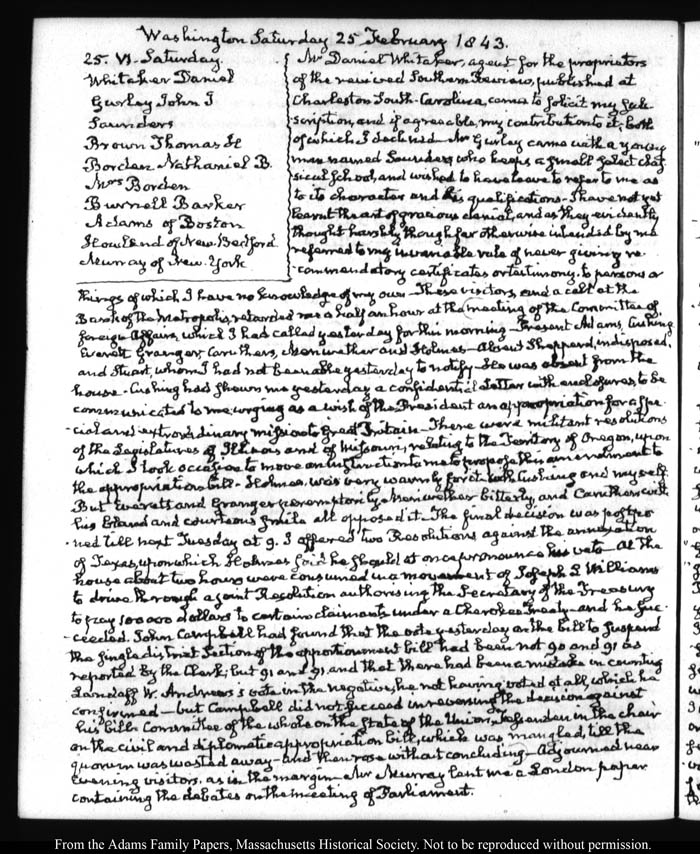 Washington Saturday 25 February 1843.
25. VI. Saturday.
Whitaker Daniel
Gurley John I
Saunders
Brown Thomas H
Borden Nathaniel B.
Mrs Borden
Burnell Barker
Adams of Boston
Howland of New-Bedford
Murray of New-York
Mr Daniel Whitaker, agent for the proprietors
of the revived Southern Review, published at
Charleston South-Carolina, came to solicit my sub-
scription, and if agreeable, my contribution to it; both
of which I declined— Mr Gurley came with a young
man named Saunders, who keeps a small select clas
sical School, and wished to have leave to refer to me as
to its character and his qualifications— I have not yet
learnt the art of gracious denial, and as they evidently
thought harshly though far otherwise intended by me
referred to my invariable rule of never giving re-
commendatory certificates or testimony, to persons or
things of which I have no knowledge of my own— These visitors, and a call at the
Bank of the Metropolis, retarded me a half an hour at the meeting of the Committee of
foreign Affairs, which I had called yesterday for this morning— Present Adams, Cushing
Everett Granger, Caruthers, Meriwether and Holmes— Absent Shepperd, indisposed,
and Stuart, whom I had not been able yesterday to notify— He was absent from the
house— Cushing had shewn me yesterday a confidential Letter with enclosures to be
communicated to me urging as a wish of the President an appropriation for a spe-
cial and extraordinary mission to Great Britain— There were militant resolutions
of the Legislatures of Illinois and of Missouri, relating to the Territory of Oregon, upon
which I took occasion to move an instruction to me to propose this an amendment to
the appropriation bill— Holmes, was very warmly for it with Cushing and myself.
But Everett and Granger peremptorily, Meriwether bitterly, and Caruthers with
his bland and courteous smile all opposed it— The final decision was postpo
ned till next Tuesday at 9. I offered two Resolutions against the annexation
of Texas, upon which Holmes said he should at once pronounce his veto— At the
house about two hours were consumed in a movement of Joseph L Williams
to drive through a joint Resolution authorising the Secretary of the Treasury
to pay 100 000 dollars to certain claimants under a Cherokee Treaty— and he suc-
ceeded. John Campbell had found that the vote yesterday on the bill to suspend
the single district Section of the apportionment bill had been not 90 and 91 as
reported by the Clerk, but 91 and 91, and that there had been a mistake in counting
Landaff W. Andrews's vote in the negative, he not having voted at all, which he
confirmed— but Campbell did not succeed in reversing the decision against
his bill. Committee of the whole on the State of the Union, in the chair
on the civil and diplomatic appropriation bill, which was mangled, till the
quorum was wasted away— and then rose without concluding— Adjourned near
Evening visitors, as in the margin— Mr Murray lent me a London paper
containing the debates on the meeting of Parliament.
From the Adams Family Papers, Massachusetts Historical Society. Not to be reproduced without permission.